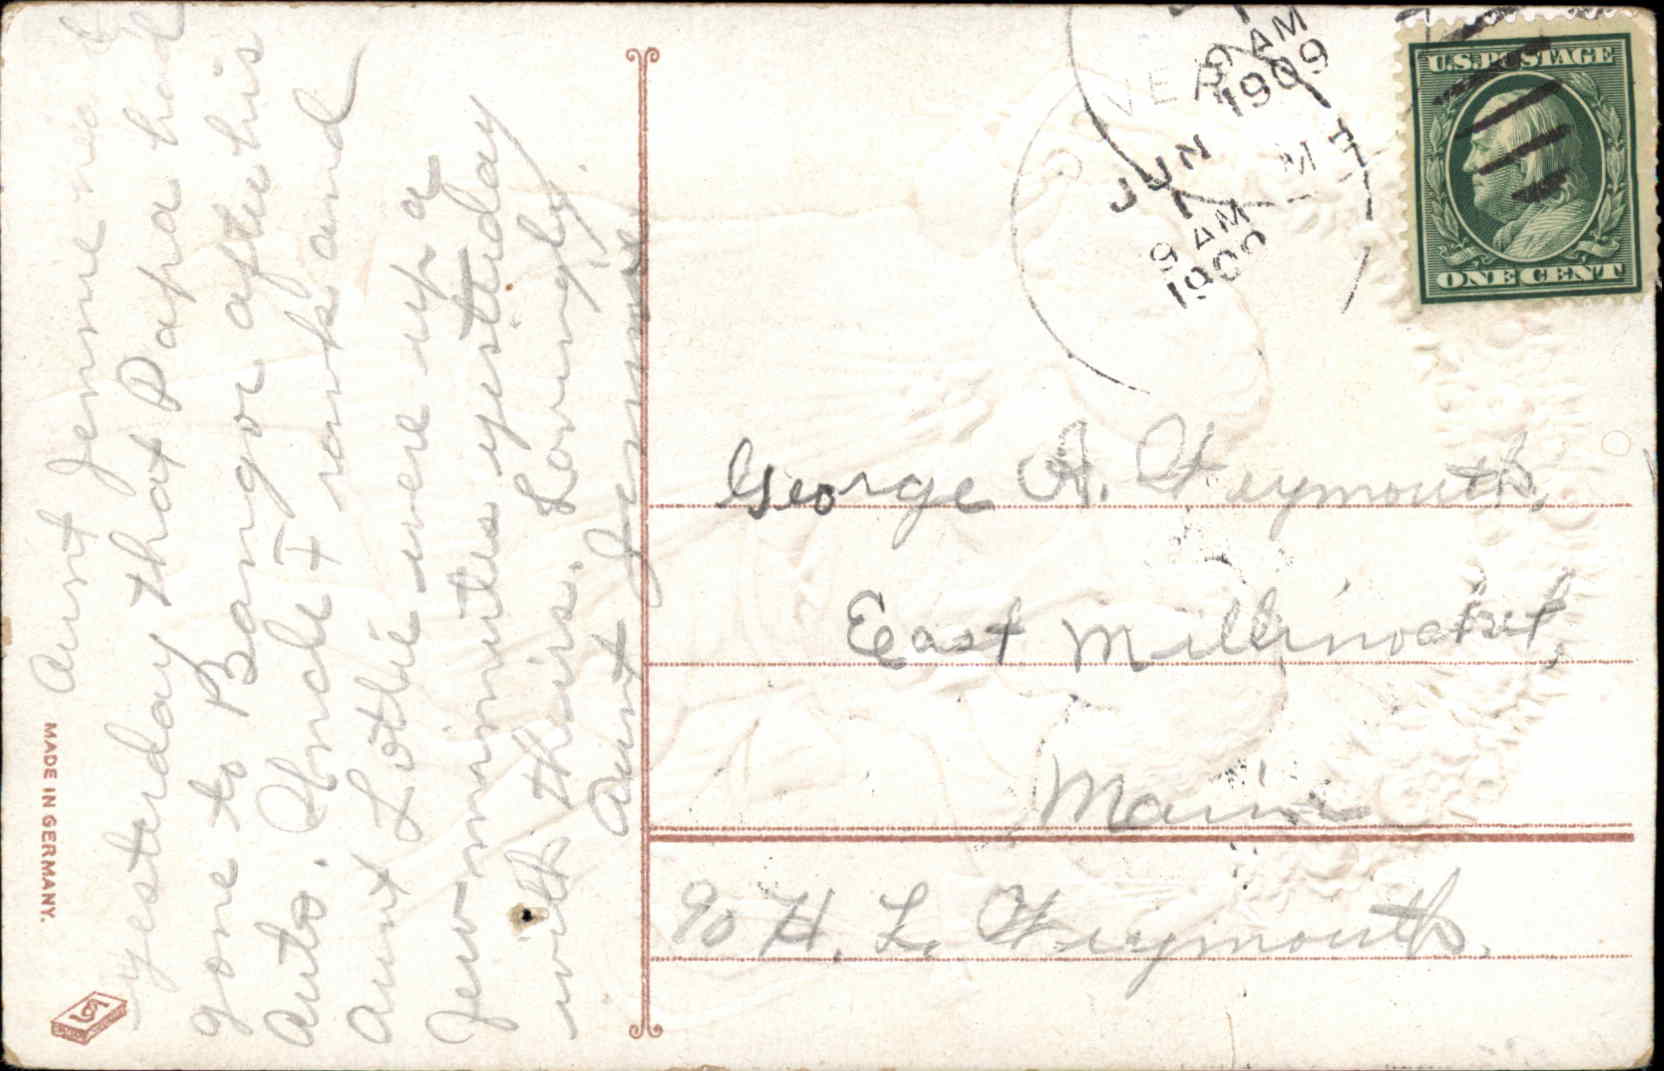 Aunt Jennie
yesterday that Papa had
gone to Bangor after his
Auto. Uncle F and
Aunt Lottie were up a
few minutes yesterday
with theirs. Lovingly,
Aunt Jennie
MADE IN GERMANY.
9 AM
1909
JUN
9 AM
1909
U.S. POSTAGE
ONE CENT
George A. Weymouth,
East Millinocket,
Maine
c/o H. L. Weymouth.